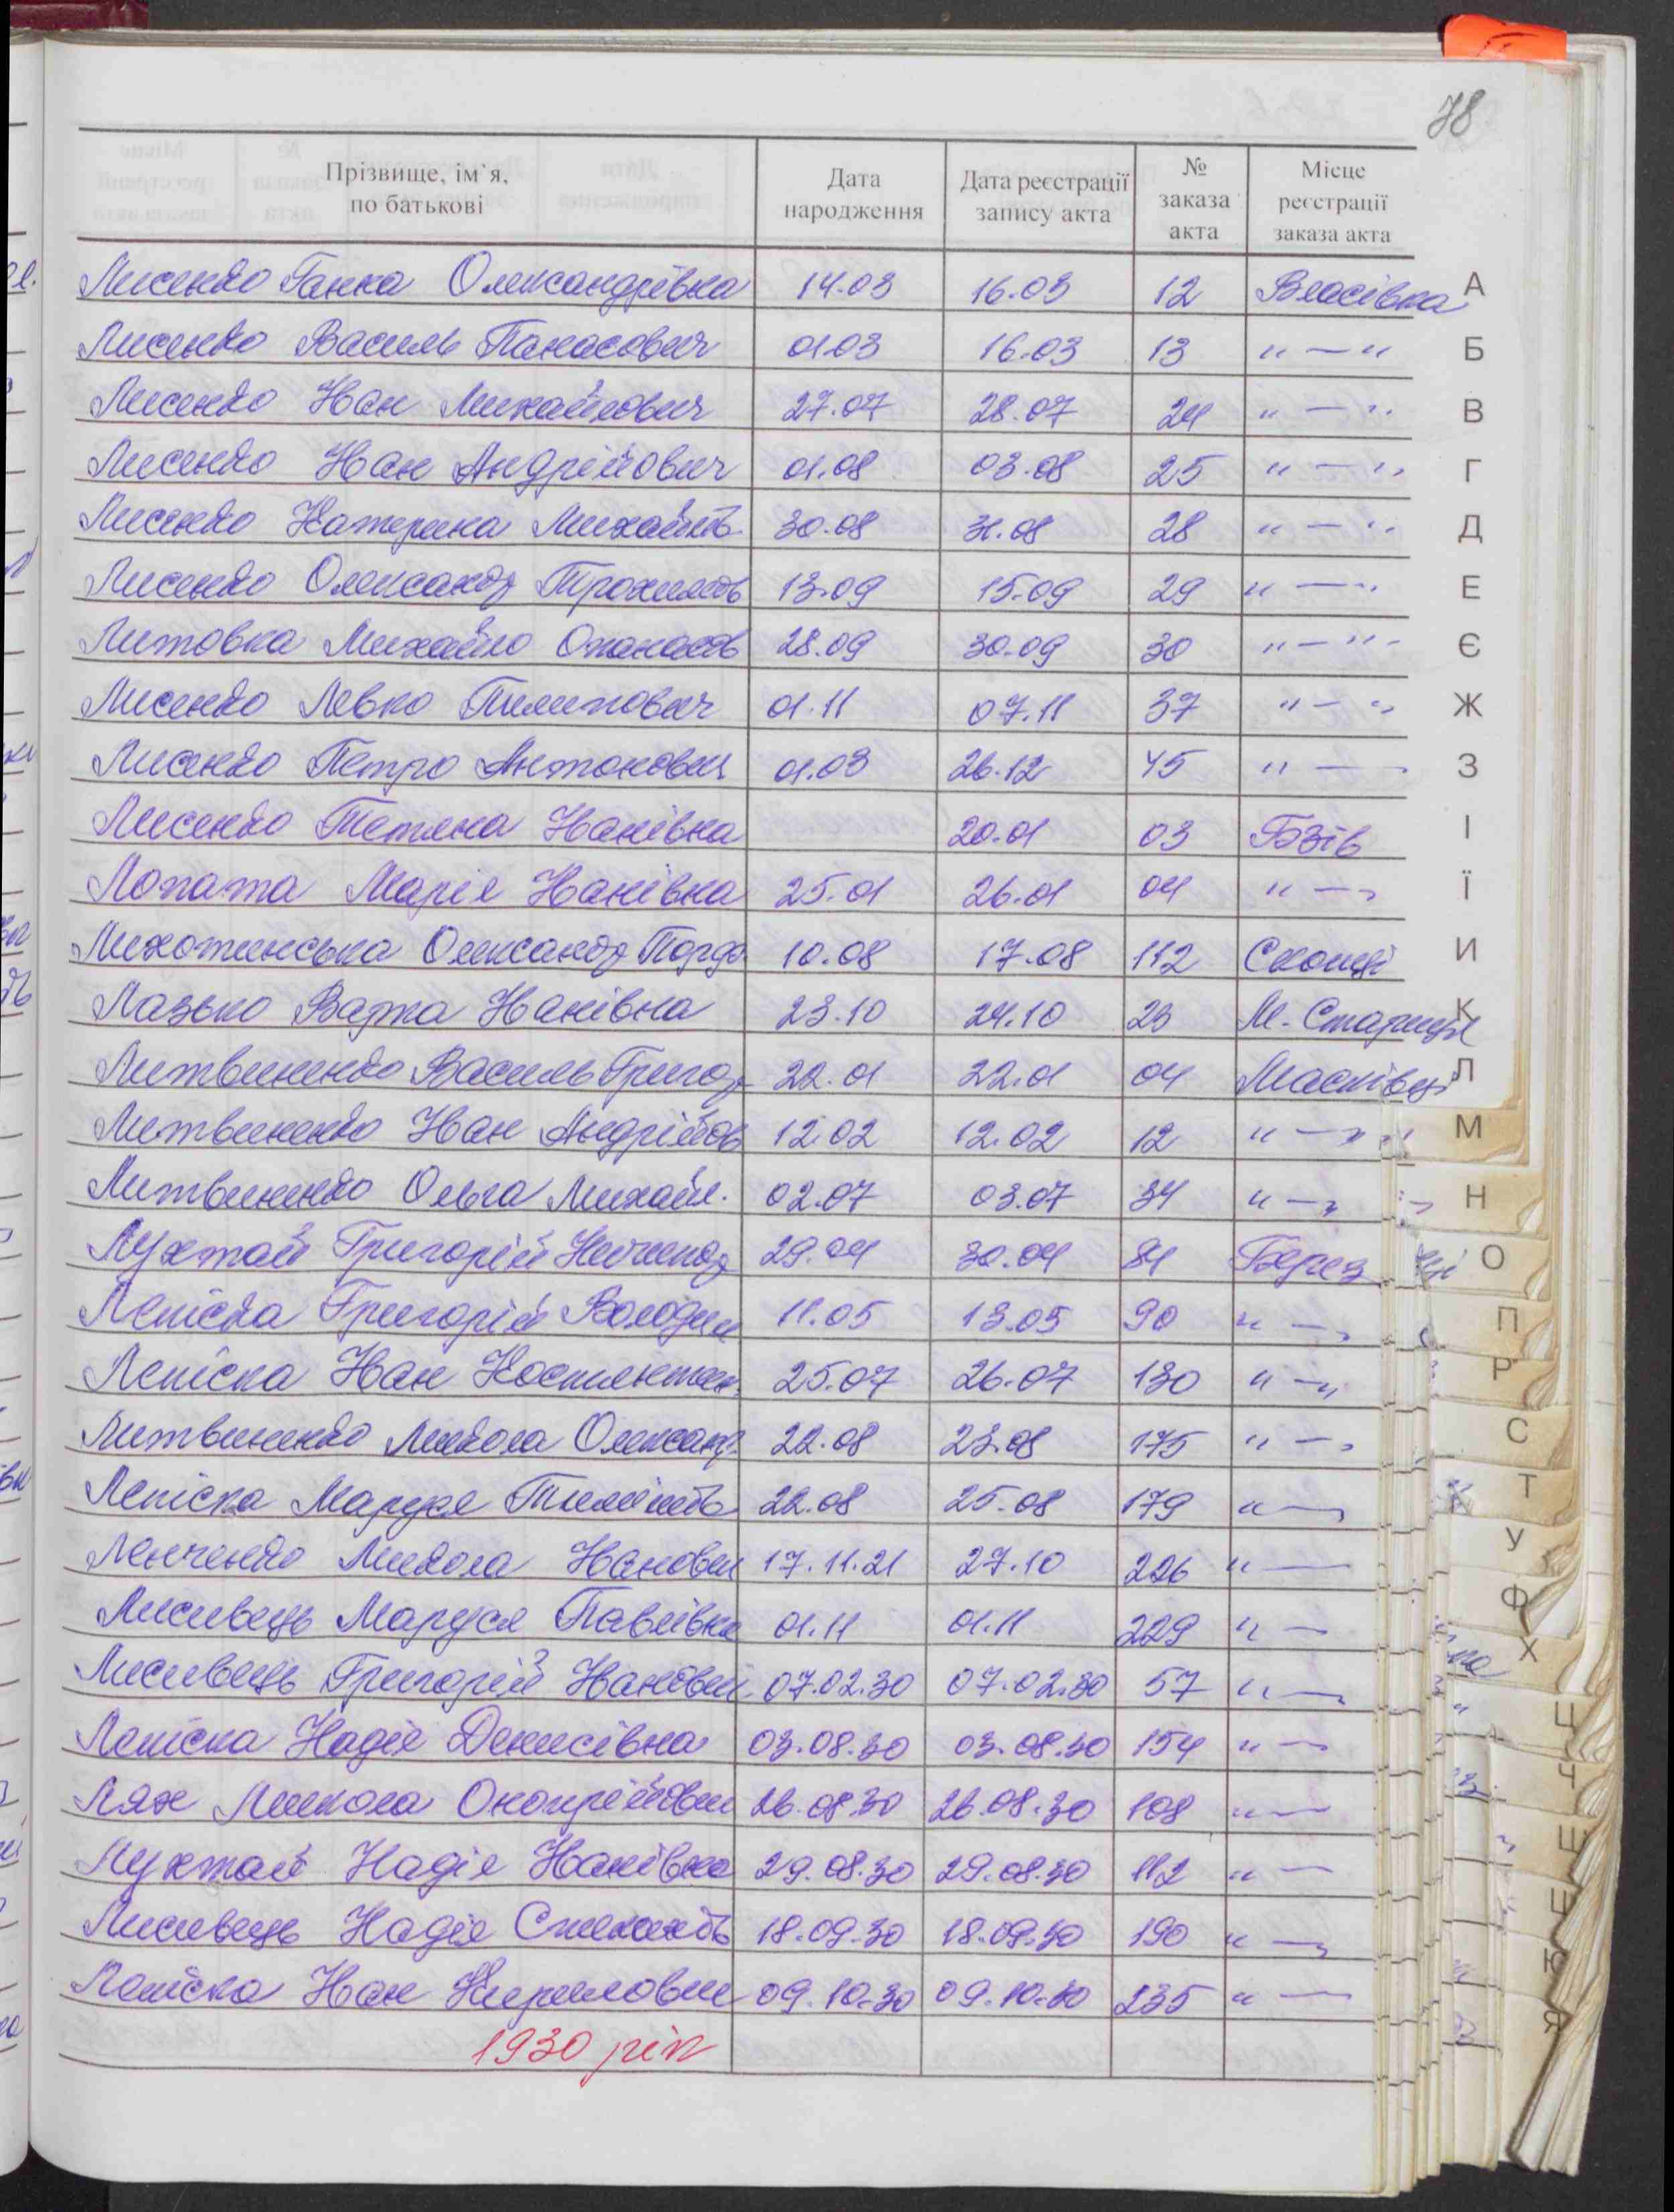 78
Прізвище, ім`я, по батькові | Дата народження | Дата реєстрації запису акта | № заказа акта | Місце реєстрації заказа акта
Лисенко Ганна Олександрівна 14.03 16.03 12 Власівка
Лисенко Василь Панасович 01.03 16.03 13 " — "
Лисенко Іван Михайлович 27.07 28.07 24 " — "
Лисенко Іван Андрійович 01.08 03.08 25 " — "
Лисенко Катерина Михайлів. 30.08 31.08 28 " — "
Лисенко Олександр Трохимов 13.09 15.09 29 " — "
Литовка Михайло Опанасов 28.09 30.09 30 " — "
Лисенко Левко Пилипович 01.11 07.11 37 " — "
Лисенко Петро Антонович 01.03 26.12 45 " —
Лисенко Тетяна Іванівна 20.01 03 Бзів
Лопата Марія Іванівна 25.01 26.01 04 " — "
Олександр 10.08 17.08 112 Скопці
Лазько Іванівна 23.10 24.10 23 М. Стариця
Литвиненко Василь Григор 22.01 22.01 04 Масківці
Литвиненко Іван Андрійов 12.02 12.02 12 " — "
Литвиненко Ольга Михайл. 02.07 03.07 34 " — "
Лухтай Григорій Ничипор 29.04 30.04 81 Берез
Лепіска Григорій Володим 11.05 13.05 90 " — "
Лепіска Іван Костянтин. 25.07 26.07 130 " — "
Литвиненко Микола Олександ. 22.08 23.08 175 " — "
Лепіска Маруся 22.08 25.08 179 " —
Ленченко Микола Іванович 17.11.21 27.10 226 " —
Лисивець Маруся Павлівна 01.11 01.11 229 " —
Лисивець Григорій Іванович 07.02.30 07.02.30 57 " —
Лепіска Надія Денисівна 03.08.30 03.08.30 154 " —
Лях Микола Онопрійович 26.08.30 26.08.30 108 " —
Лухтай Надія Іванівна 29.08.30 29.08.30 112 " —
Лисивець Надія 18.09.30 18.09.30 190 " —
Лепіска Іван Кирилович 09.10.30 09.10.30 235 " —
1930 рік
А
Б
В
Г
Д
Е
Є
Ж
З
І
Ї
И
К
Л
М
Н
О
П
Р
С
Т
У
Ф
Х
Ц
Ч
Ш
Щ
Ю
Я